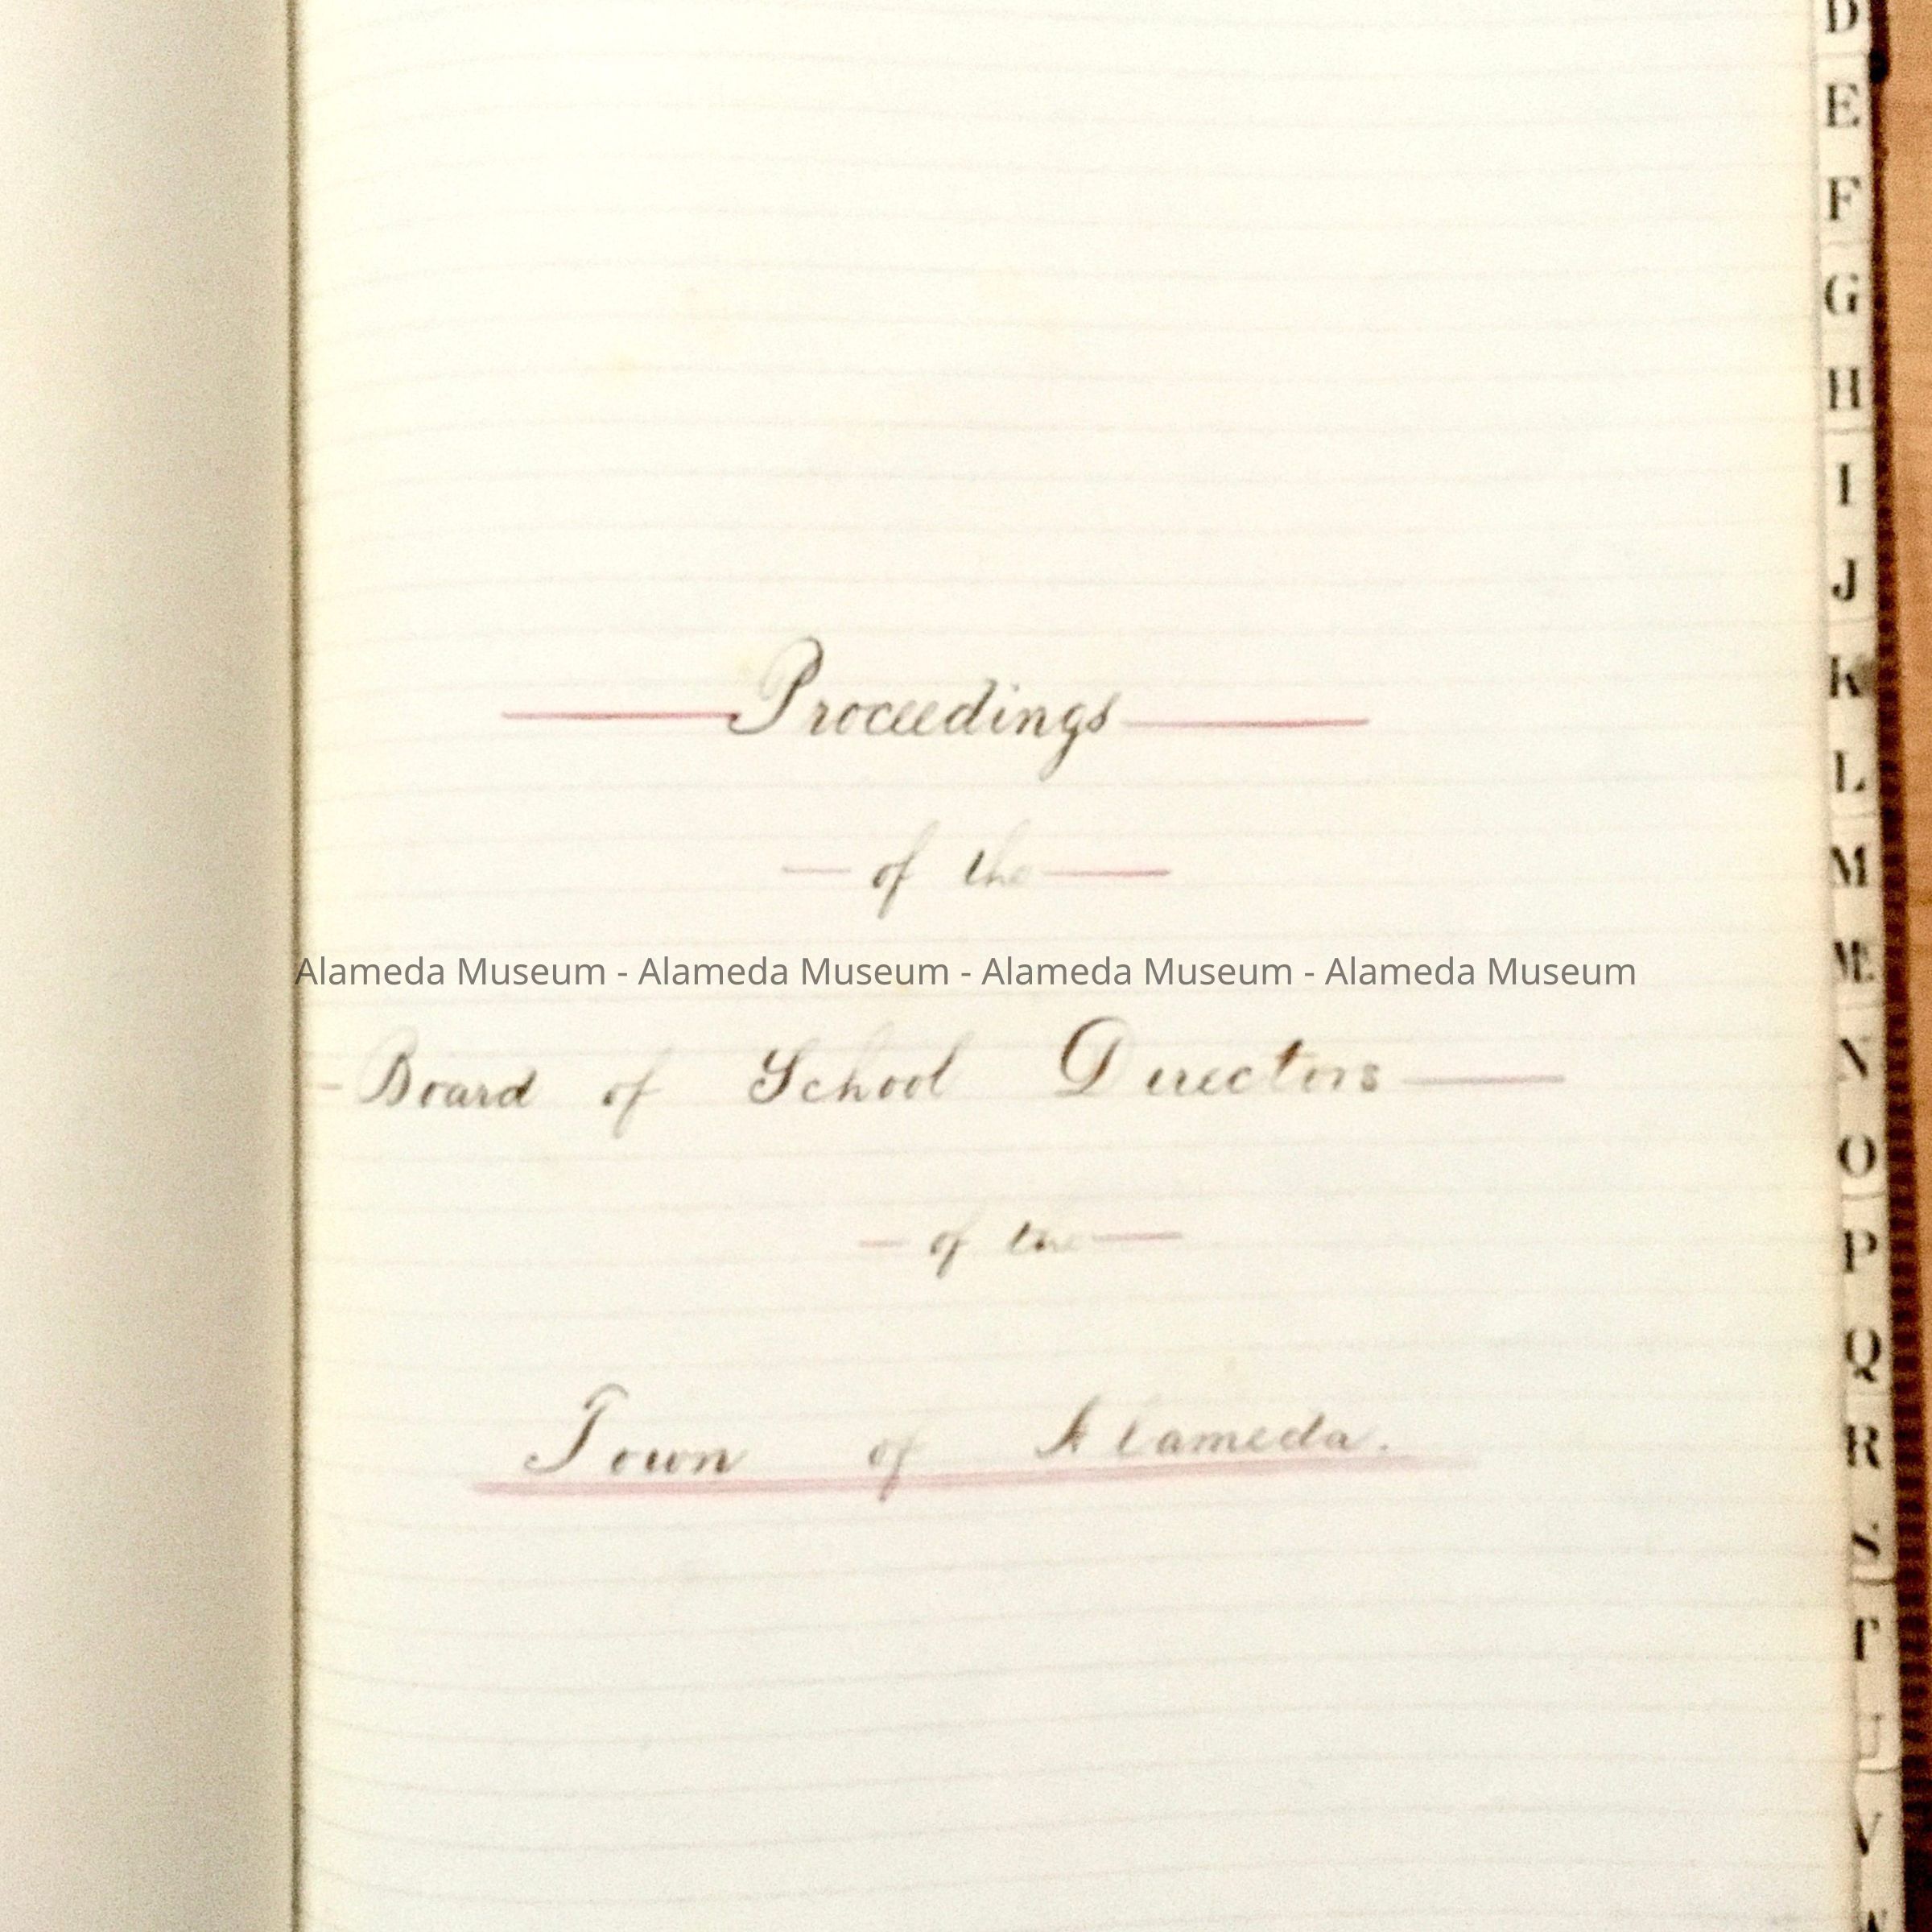 Proceedings
of the
Alameda Museum - Alameda Museum - Alameda Museum - Alameda Museum
Board of School Directors
of the
Town of Alameda.
D
E
F
G
H
I
J
K
L
M
Mc
N
O
P
Q
R
S
T
U
V